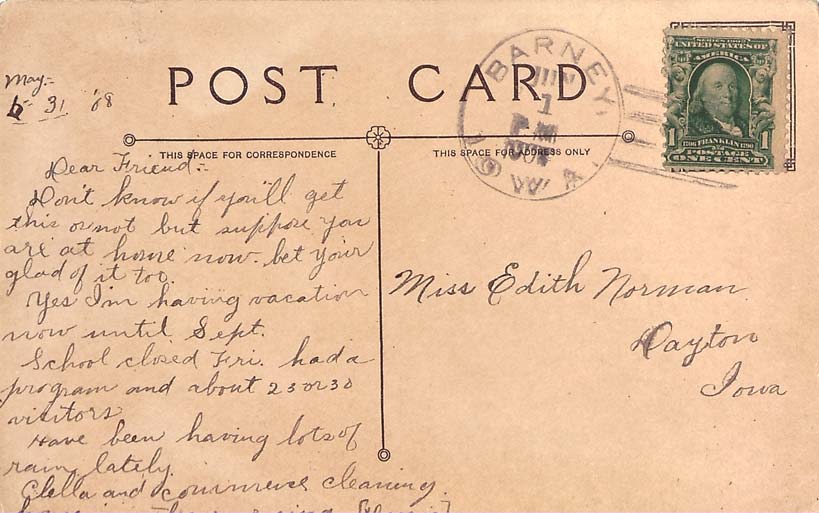 May:-
31 '08
POST CARD
THIS SPACE FOR CORRESPONDENCE
THIS SPACE FOR ADDRESS ONLY
BARNEY,
JUN
1
PM
IOWA.
SERIES 1902
UNITED STATES OF
AMERICA
1 FRANKLIN 1
1706 1790
POSTAGE
ONE CENT
Dear Friend:-
Don't know if you'll get
this or not but suppose you
are at home now. bet your
glad of it too.
Yes I'm having vacation
now until Sept.
School closed Fri. had a
program and about 25 or 30
visitors
Have been having lots of
rain lately.
Clella and commence cleaning
Miss Edith Norman
Dayton
Iowa